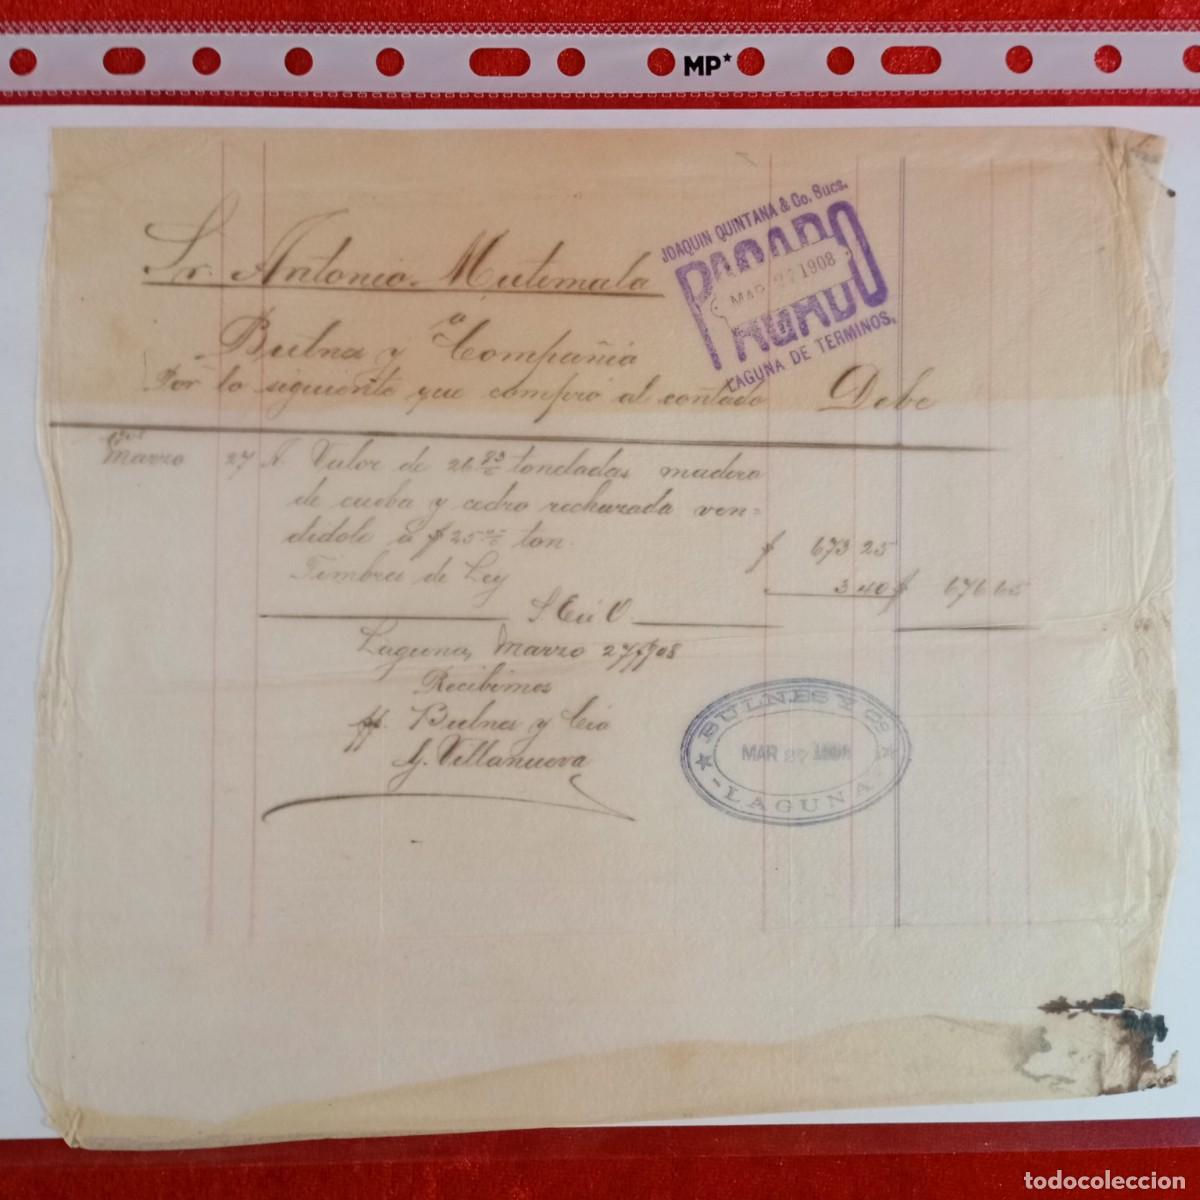 MP*
JOAQUIN QUINTANA & Co. Sucs.
PAGADO
MAR 27 1908
LAGUNA DE TERMINOS.
Sr. Antonio Mutemala
a
Bulnes y Compañia
Por lo siguiente que compró al contado Debe
1908
Marzo 27 A Valor de 26 93/c tondadas madera
de caoba y cedro rechazada ven=
didole á $25 00/c ton. $ 673 25
Timbres de Ley 3 40 $ 676 65
S. E ú O
Laguna, Marzo 27//908
Recibimos
pp. Bulnes y Cia
Villanueva
BULNES Y Co
MAR 27 1908
LAGUNA
todocoleccion